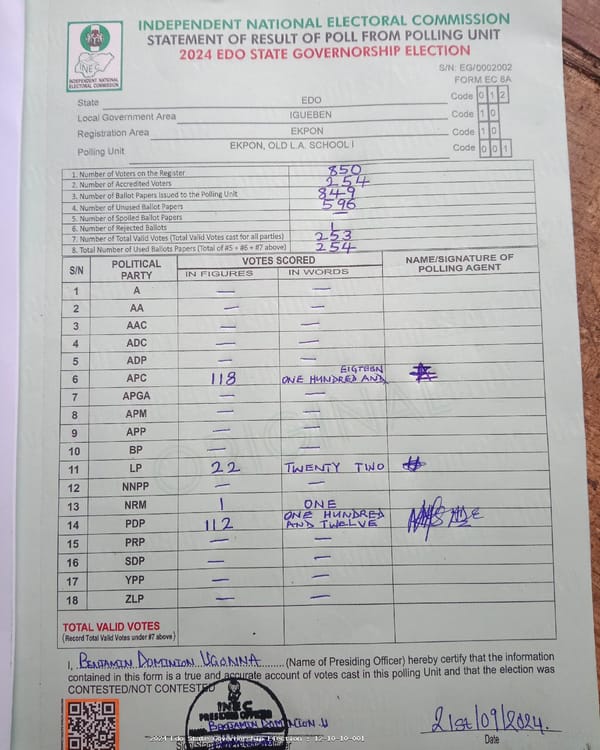 INDEPENDENT NATIONAL ELECTORAL COMMISSION
STATEMENT OF RESULT OF POLL FROM POLLING UNIT
2024 EDO STATE GOVERNORSHIP ELECTION
INEC
INDEPENDENT NATIONAL
ELECTORAL COMMISSION
S/N: EG/0002002
FORM EC 8A
State EDO Code 0 1 2
Local Government Area IGUEBEN Code 1 0
Registration Area EKPON Code 1 0
Polling Unit EKPON, OLD L.A. SCHOOL I Code 0 0 1
1. Number of Voters on the Register 850
2. Number of Accredited Voters 254
3. Number of Ballot Papers Issued to the Polling Unit 849
4. Number of Unused Ballot Papers 596
5. Number of Spoiled Ballot Papers —
6. Number of Rejected Ballots 1
7. Number of Total Valid Votes (Total Valid Votes cast for all parties) 253
8. Total Number of Used Ballots Papers (Total of #5 + #6 + #7 above) 254
S/N POLITICAL PARTY VOTES SCORED NAME/SIGNATURE OF POLLING AGENT
IN FIGURES IN WORDS
1 A — —
2 AA — —
3 AAC — —
4 ADC — —
5 ADP — —
6 APC 118 ONE HUNDRED AND EIGTEEN
7 APGA — —
8 APM — —
9 APP — —
10 BP — —
11 LP 22 TWENTY TWO
12 NNPP — —
13 NRM 1 ONE
14 PDP 112 ONE HUNDRED AND TWELVE
15 PRP — —
16 SDP — —
17 YPP — —
18 ZLP — —
ORIGINAL
TOTAL VALID VOTES
(Record Total Valid Votes under #7 above)
I, BENJAMIN DOMINION UGONNA (Name of Presiding Officer) hereby certify that the information
contained in this form is a true and accurate account of votes cast in this polling Unit and that the election was
CONTESTED/NOT CONTESTED
INEC
PRESIDING OFFICER
BENJAMIN DOMINION U
21st/09/2024
2024 Edo State Governorship Election : 12-10-10-001
Date